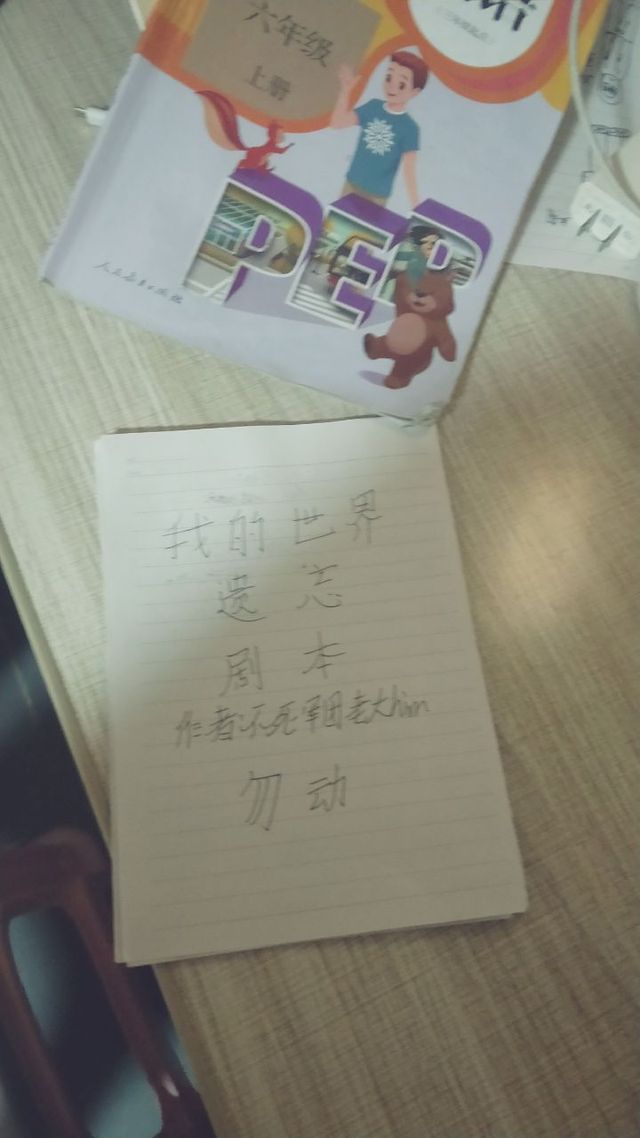 六年级
上册
PEP
人民教育出版社
我的世界
遗忘
剧本
作者不死军团老大him
勿动